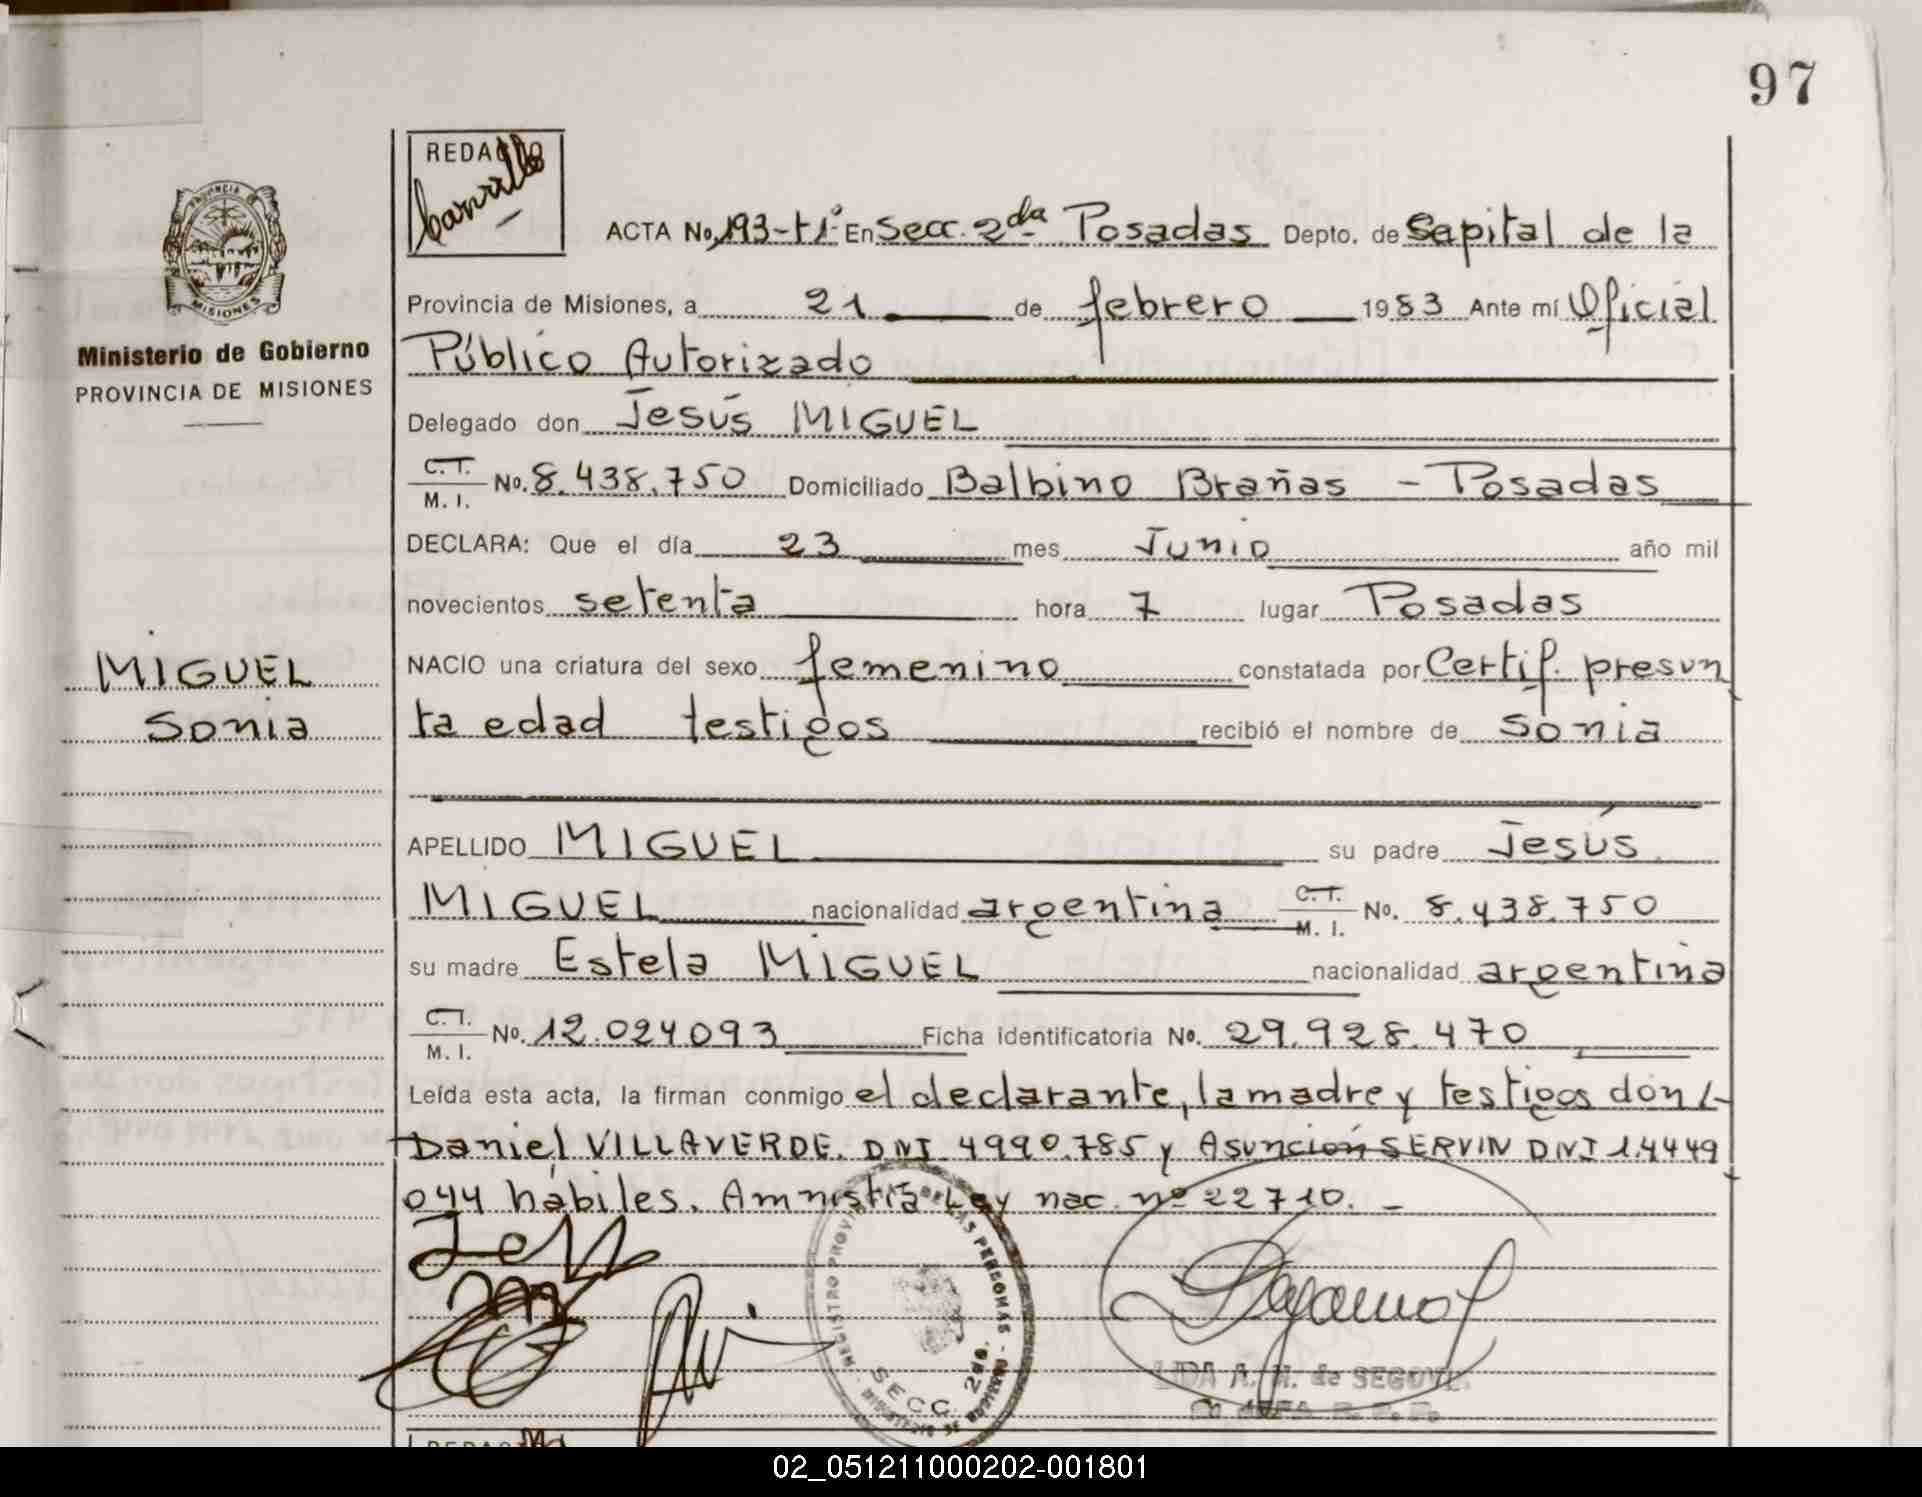 97
REDACTO
Carrillo
ACTA No. 193-t1º En Secc. 2da Posadas Depto. de Capital de la
PROVINCIA DE
MISIONES
Ministerio de Gobierno
PROVINCIA DE MISIONES
Provincia de Misiones, a 21 de febrero 1983 Ante mí Oficial
Público Autorizado
Delegado don Jesús MIGUEL
C.T. M. I. No. 8.438.750 Domiciliado Balbino Brañas - Posadas
DECLARA: Que el día 23 mes Junio año mil
novecientos setenta hora 7 lugar Posadas
MIGUEL
Sonia
NACIO una criatura del sexo femenino constatada por Certif. presun
ta edad testigos recibió el nombre de Sonia
APELLIDO MIGUEL su padre Jesús
MIGUEL nacionalidad argentina C.T. M. I. No. 8.438.750
su madre Estela MIGUEL nacionalidad argentina
C.T. M. I. No. 12.024093 Ficha identificatoria No. 29.928.470
Leída esta acta, la firman conmigo el declarante, la madre y testigos don
Daniel VILLAVERDE. DNI 4990.785 y Asunción SERVIN DNI 1.4449
044 hábiles. Amnistía Ley nac. nº 22710. -
REGISTRO PROVINCIAL DE LAS PERSONAS -
SECC. 2da.
MINISTERIO DE GOBIERNO
LIDA A. H. de SEGOVIA
REDACTO
02_051211000202-001801